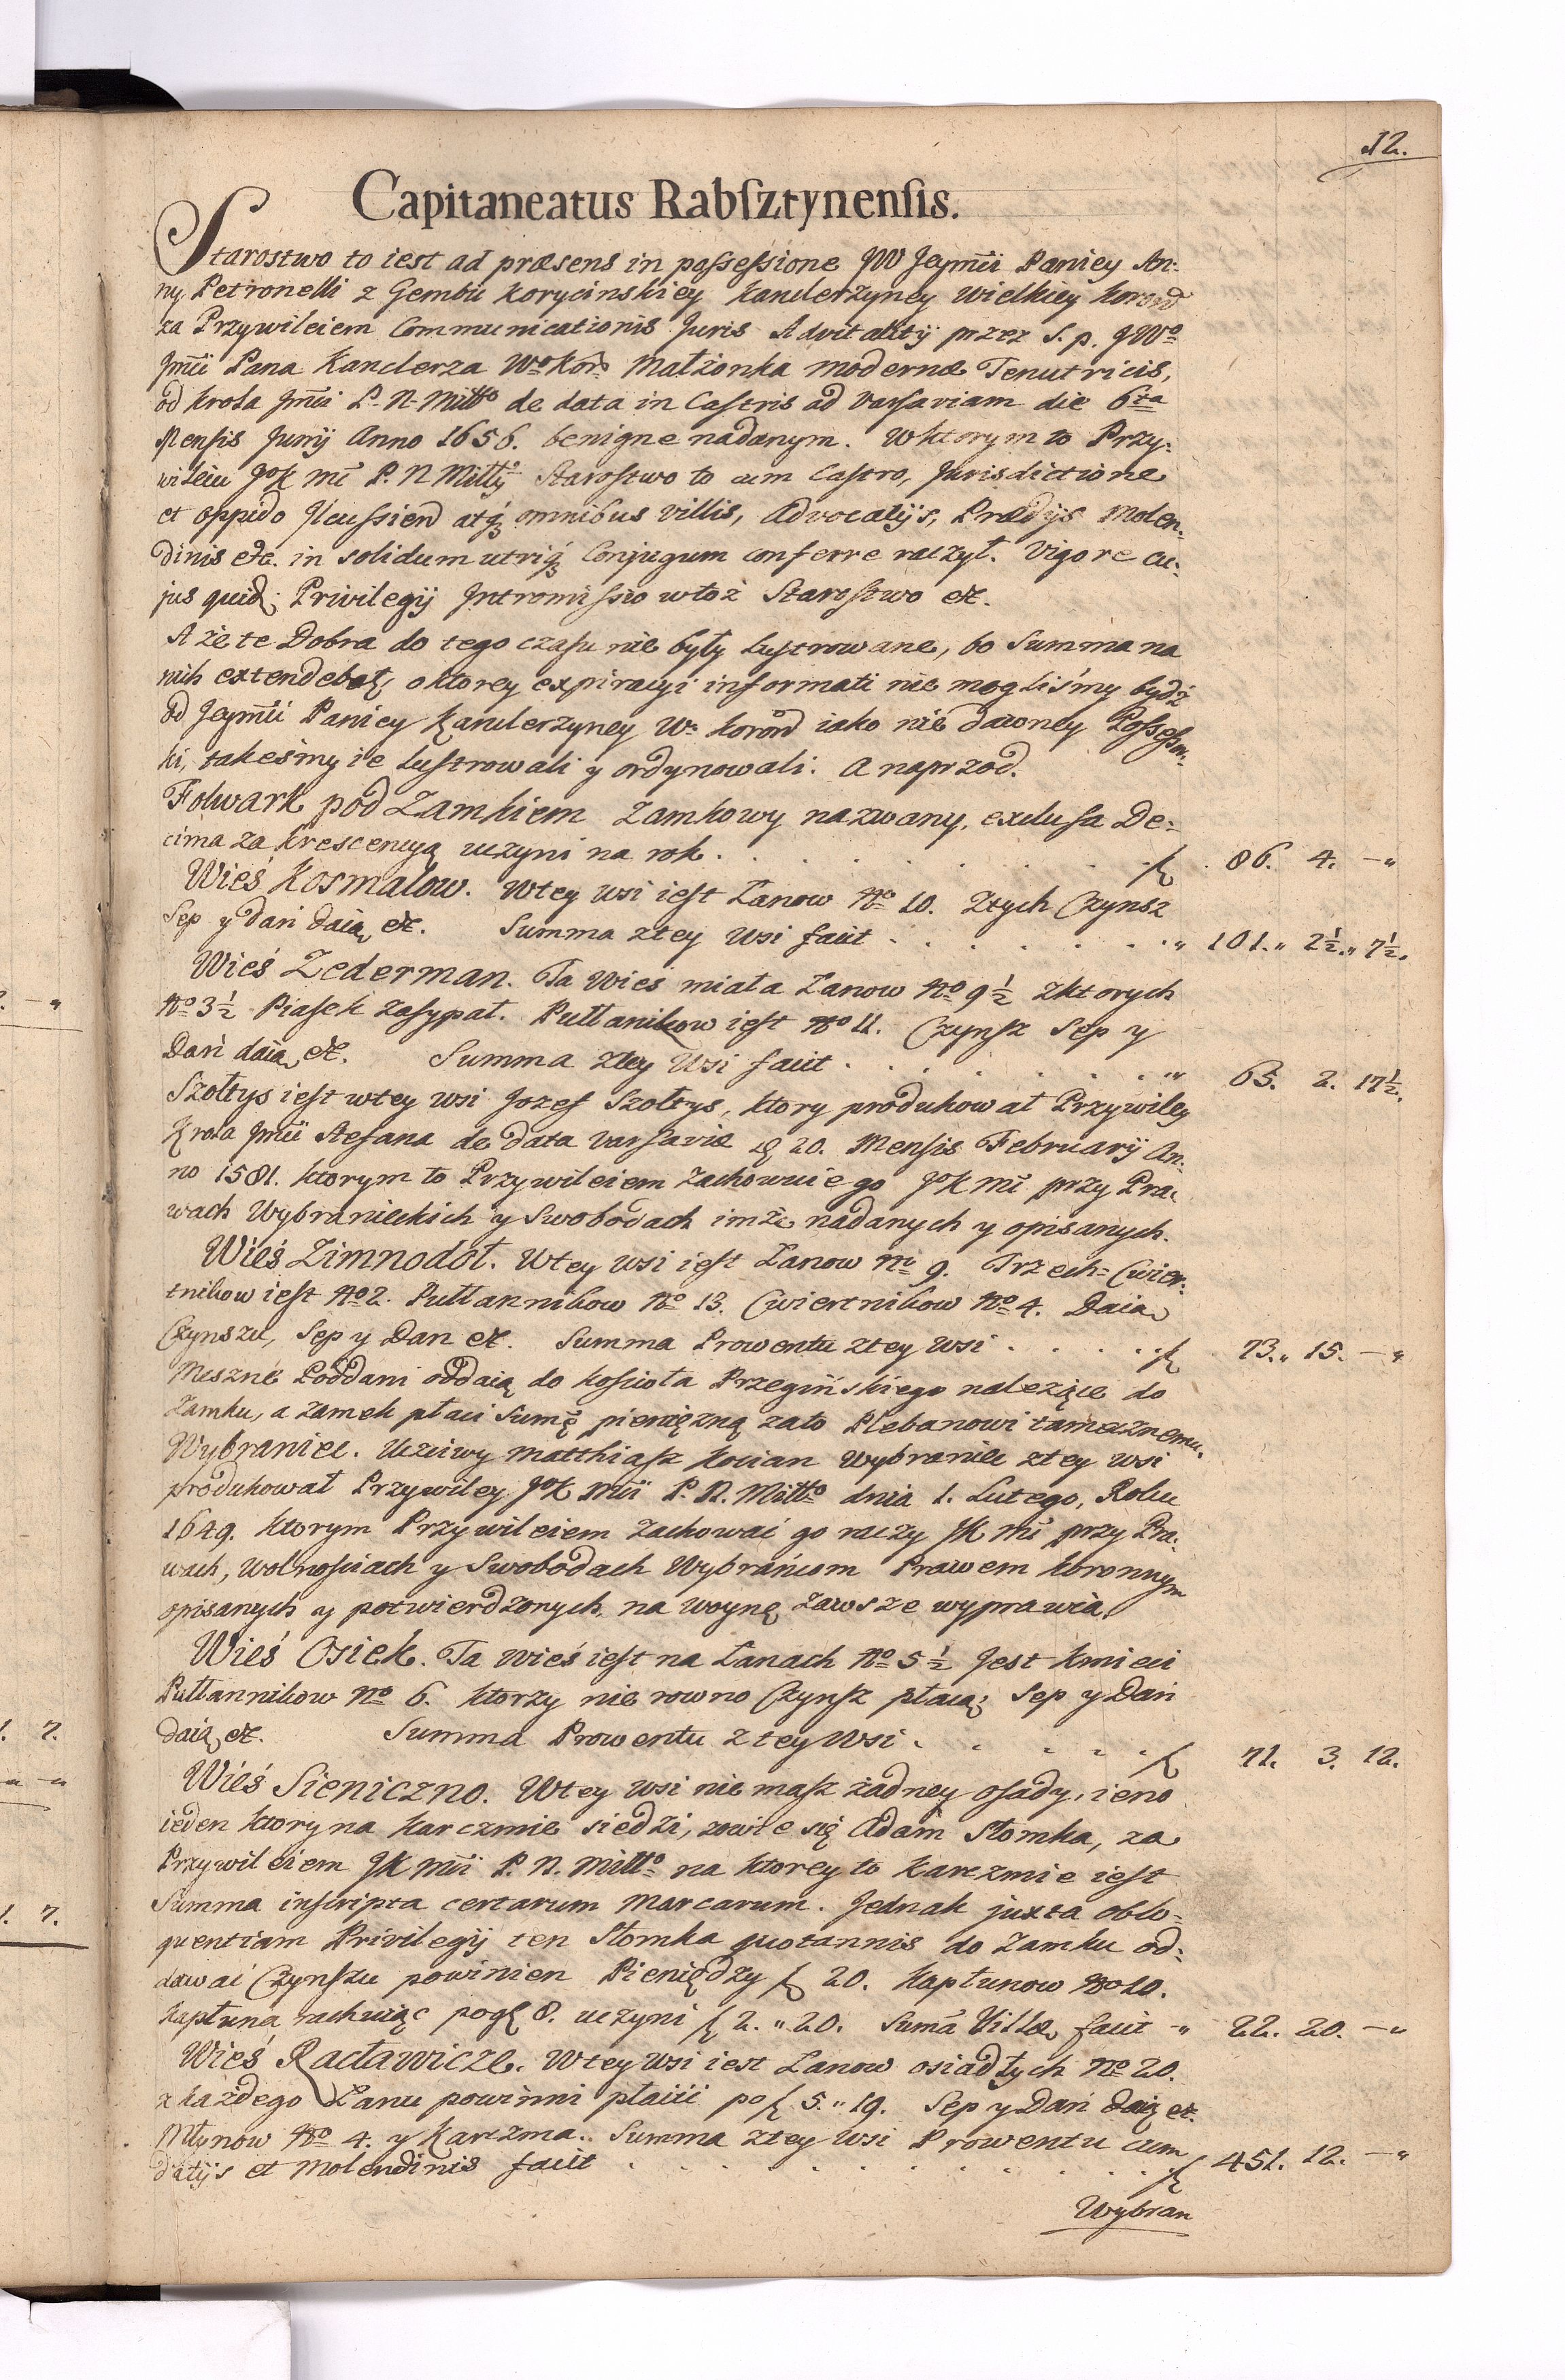 12.
Capitaneatus Rabsztynensis.
Starostwo to iest ad præsens in possessione JW Jeymći Paniey An:
ny Petronelli z Gembic Korycinskiey Kanclerzyney Wielkiey Koron̄
za Przywileiem Communicationis Juris Advitalitij przez S. p. JWo
Jmći Pana Kanclerza Wo Kor̄o Małżonka modernæ Tenutricis,
od Krola Jmći P. N. Miłło de data in Castris ad Varsaviam die 6ta
Mensis Junij Anno 1656. benigne nadanym. W ktorym to Przy:
wileiu JoK mć P. N Miłły Starostwo to cum Castro, Jurisdictione
et oppido Ilcussien̄ atq́ omnibus villis, Advocatijs, Prædijs Molen:
dinis etc. in solidum utriq́ Conjugum conferre raczył. Vigore cu:
jus quid: Privilegij Intromissio w toż Starostwo etc.
A że te Dobra do tego czasu nie były lustrowane, bo Summa na
nich extendebat, o ktorey expiracyi informati nie mogliśmy bydź
od Jeymći Paniey Kanclerzyney W. Koron̄ iako nie dawney Possessor:
ki, takeśmy ie lustrowali y ordynowali. A naprzod.
Folwark pod Zamkiem Zamkowy nazwany, exclusa De:
cima za krescencyą uczyni na rok . . . . . . . . . . ƒ 86. 4. —"
Wieś Kosmalow. W tey wsi iest Łanow No 10. Z tych Czynsz
Sep y dań daią etc. Summa z tey Wsi facit . . . . . . . " 101." 2½." 7½.
Wieś Zederman. Ta Wieś miała Łanow No 9½ z ktorych
No 3½ Piasek zasypał. Pułłanikow iest No 11. Czynsz Sep y
Dań daią etc. Summa z tey Wsi facit . . . . . . . " 65. 2. 17½.
Szołtys iest w tey wsi Jozef Szołtys, ktory produkował Przywiley
Krola Jmći Stefana de data Varsaviæ d 20. Mensis Februarij An:
no 1581. ktorym to Przywileiem zachowuie go JoK Mć przy Pra:
wach Wybranieckich y Swobodach imże nadanych y opisanych.
Wieś Zimnodoł. W tey wsi iest Łanow No 9. Trzech=Cwier:
tnikow iest No 2. Pułłannikow No 13. Cwiertnikow No 4. Daią
Czynszu, Sep y Dan etc. Summa Prowentu z tey Wsi . . . . . ƒ 73." 15. —"
Meszne Poddani oddaią do Koscioła Przegińskiego należące do
Zamku, a zamek płaci Sumę pieniężną zato Plebanowi tamecznemu.
Wybraniec. Uczciwy Matthiasz Kocian Wybraniec z tey wsi
produkował Przywiley JoK Mći P. N. Miłło dnia 1. Lutego, Roku
1649. ktorym Przywileiem zachowac go raczy JK Mć przy Pra:
wach, wolnosciach y Swobodach Wybrańcom Prawem Koronnym
opisanych y potwierdzonych, na woynę zawsze wyprawia.
Wieś Osiek. Ta wieś iest na Łanach No 5½ Jest Kmieci
Pułłannikow No 6. ktorzy nie rowno Czynsz płacą; Sep y Dań
daią, etc. Summa Prowentu z tey Wsi . . . . . ƒ 71. 3. 12.
Wieś Sieniczno. W tey wsi nie masz żadney osady, ieno
ieden ktory na karczmie siedzi, zowie się Adam Słomka, za
Przywileiem JK Mći P. N. Miłło na ktorey to karczmie iest
Summa inscripta certarum Marcarum. Jednak juxta oblo=
quentiam Privilegij ten Słomka quotannis do Zamku od:
dawać Czynszu powinien Pieniędzy ƒ 20. Kapłunow No 10.
Kapłuna rachuiąc po g 8. uczyni ƒ 2. " 20. Suma Villæ facit " 22. 20. —"
Wieś Racławicze. W tey Wsi iest Łanow osiadłych No 20.
z każdego Łanu powinni płacić po ƒ 5. " 19. Sep y Dań daią etc.
Młynow No 4. y Karczma. Summa z tey Wsi Prowentu cum
datijs et Molendinis facit . . . . . . . . . . ƒ 451. 12. —"
Wybran